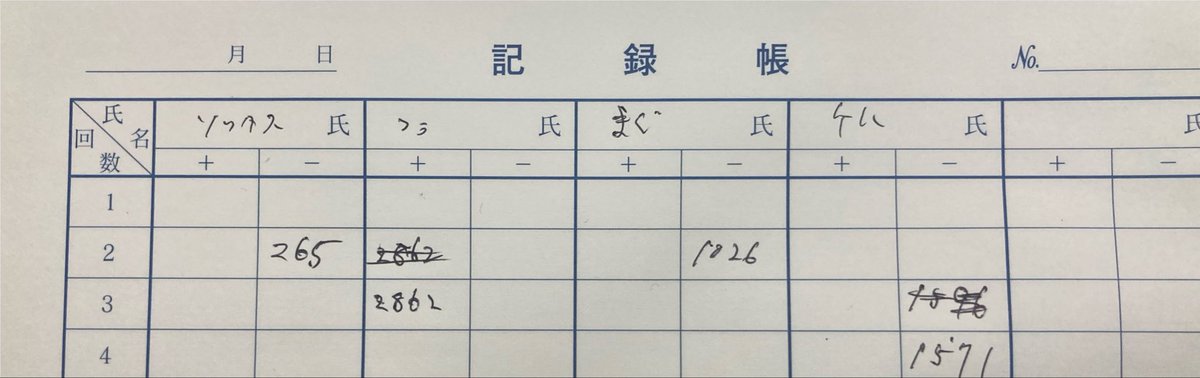 月 日 記録帳 No.
氏名 回数 ソックス 氏 氏 まぐ 氏 ケム 氏 氏
+ − + − + − + − + −
1
2 265 2862 1026
3 2862
4 1571